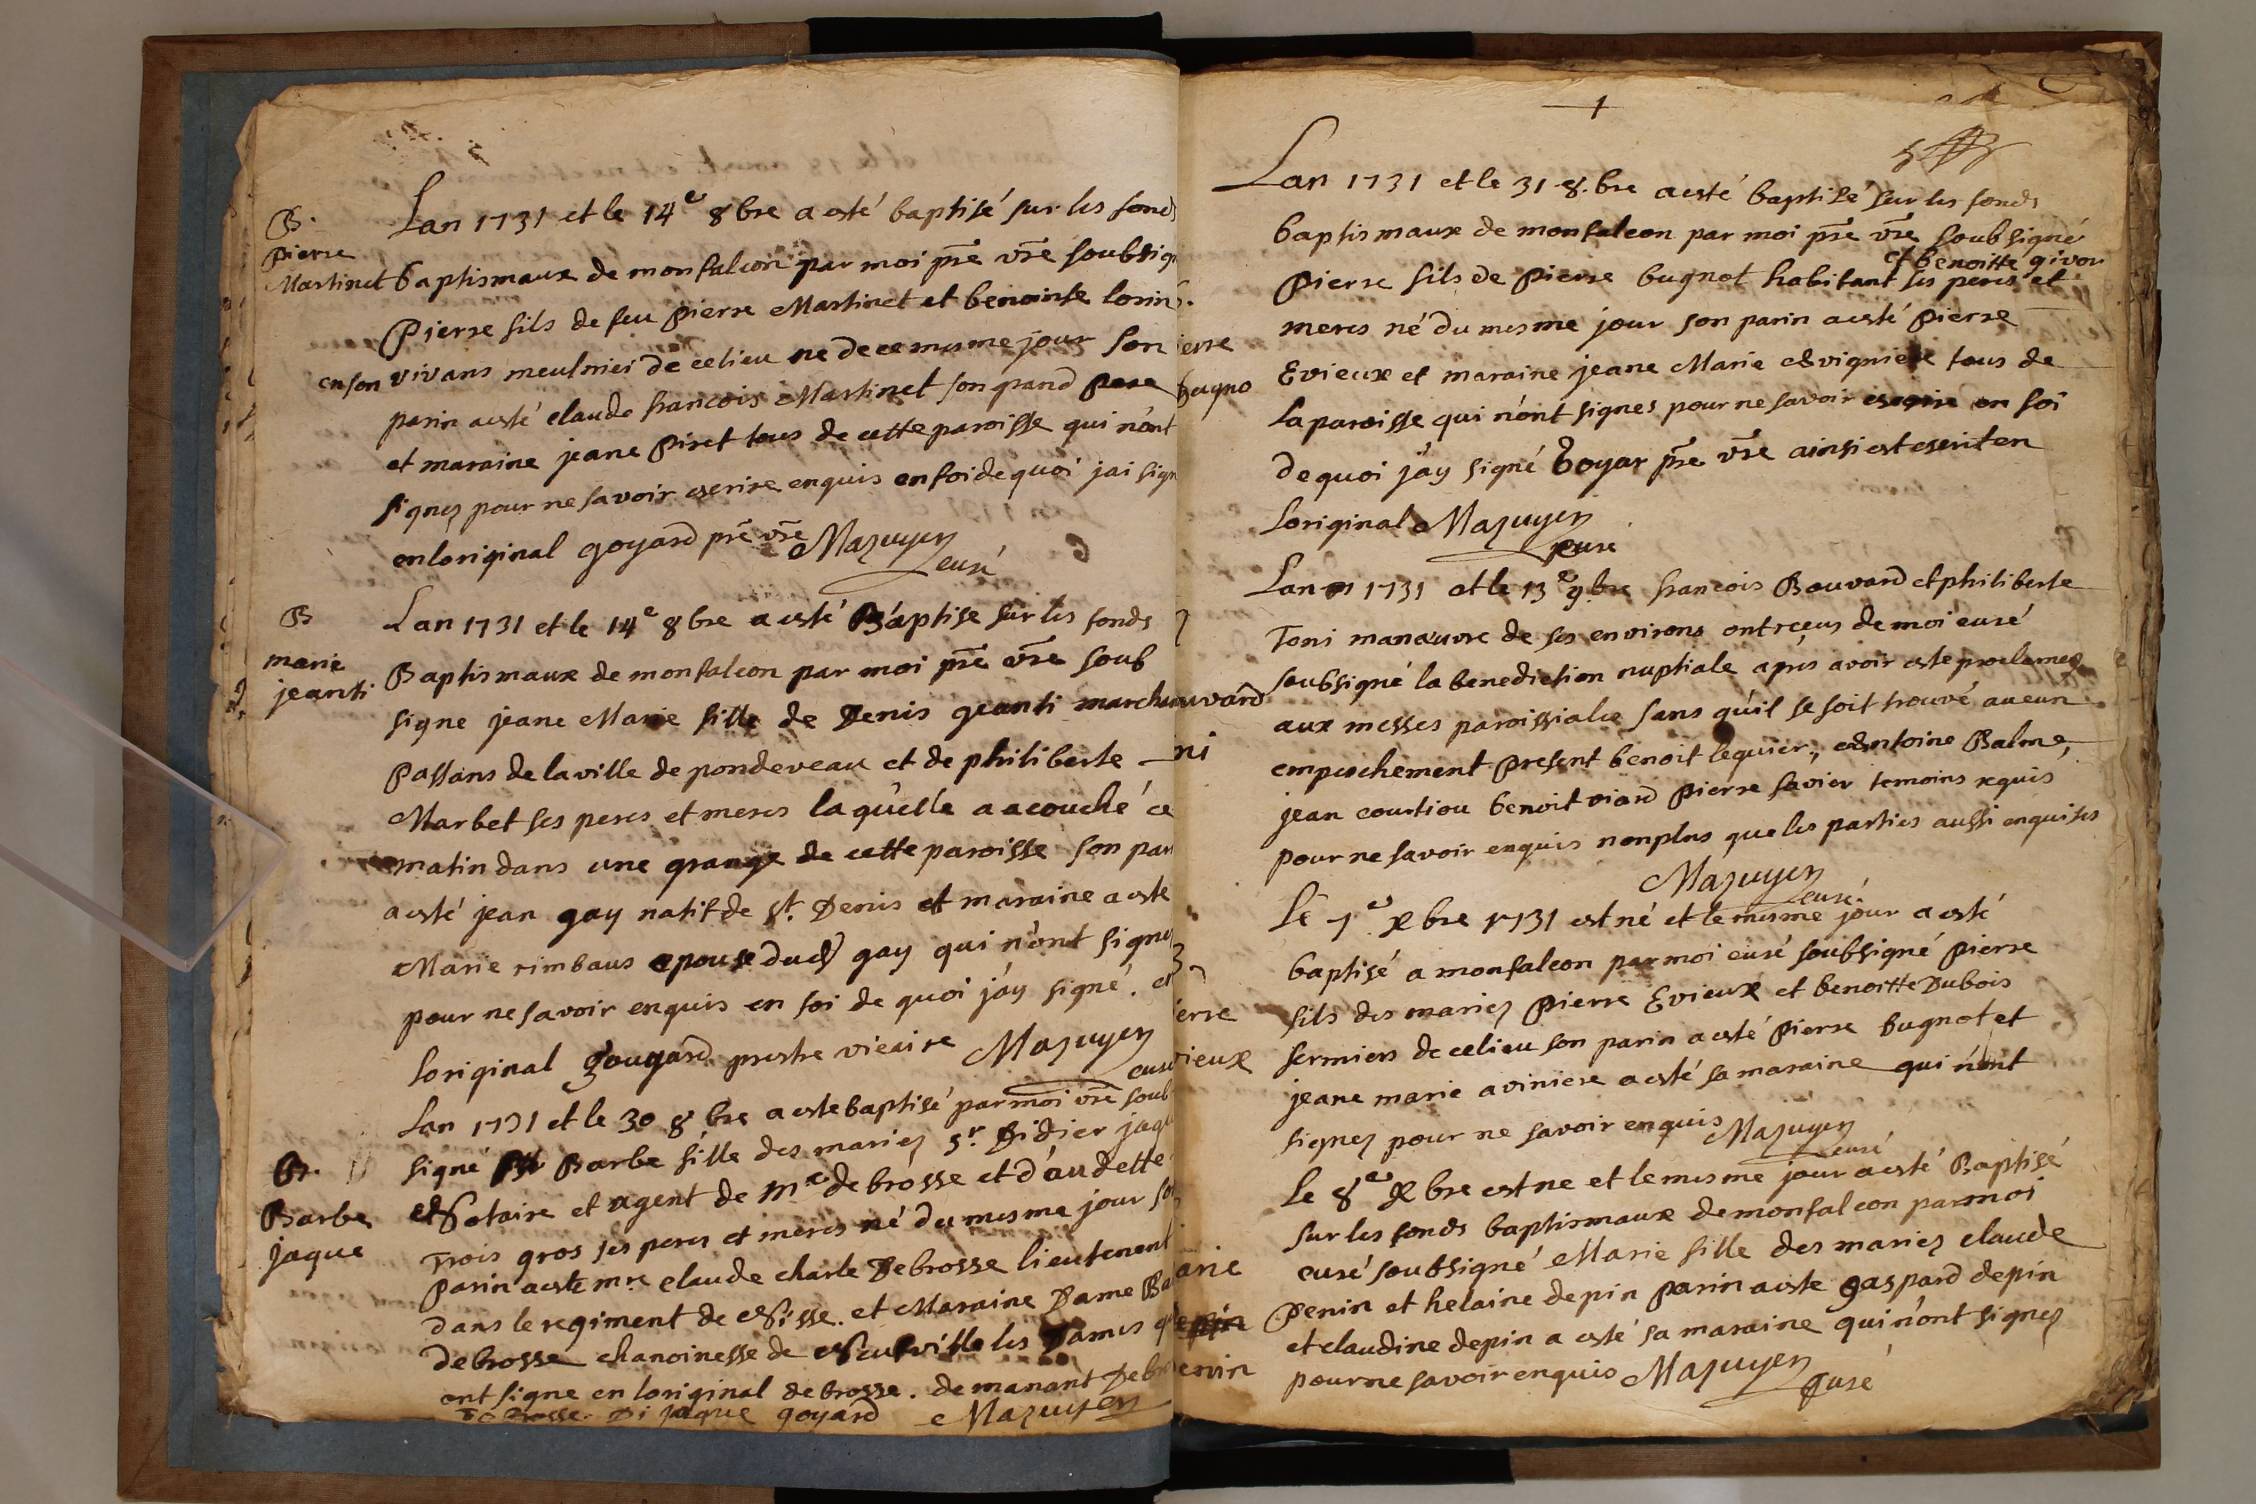 B.
Pierre
Martinet
Lan 1731 et le 14e 8bre a esté baptisé sur les fonds
baptismaux de monfalcon par moi pre vre soubsign
Pierre fils de feu Pierre Martinet et benointe lorin
en son vivans meusnier de ce lieu ne de ce mesme jour son
parin a esté claude francois Martinet son grand pere
et maraine jeane Piret tous de cette paroisse qui n'ont
signez pour ne savoir escrire enquis en foi de quoi jai sign
en loriginal goyard pre vre Mazuyer
curé
B
marie
jeanti
Lan 1731 et le 14e 8bre a esté Baptise sur les fonds
Baptismaux de monfalcon par moi pre vre soub
signe jeane Marie fille de Denis geanti march
passans de la ville de pondeveau et de philiberte
Marbet ses peres et meres la quelle a acouché ce
matin dans une grange de cette paroisse son par
a esté jean gay natif de st. Denis et maraine a este
Marie rimbaus epouse dud gay qui n'ont signe
pour ne savoir enquis en foi de quoi j'ay signé. en
loriginal gougard prestre vicaire Mazuyer
curé
B.
Barbe
jaque
Lan 1731 et le 30 8bre a este baptisé par moi vre soub
signé Barbe fille des mariez sr. Didier jaqu
Notaire et agent de Mre debrosse et d'audette
Trois gros ses peres et meres né du mesme jour so
Parin a este mre claude charle Debrosse lieutenent
dans le regiment de Nisse. et Maraine Dame Ba
debrosse chanoinesse de Neufville les Dames q
ont signe en loriginal debrosse. de manant Deb
De Brosse. Di jaque goyard Mazuyer
1
Lan 1731 et le 31.8.bre a esté baptisé sur les fonds
baptismaux de monfalcon par moi pre vre soubsigné
et benoitte givor
Pierre fils de Pierre bugnot habitant ses peres et
meres né du mesme jour son parin a esté Pierre
Evieux et maraine jeane Marie Avigniere tous de
la paroisse qui n'ont signes pour ne savoir escrire en foi
de quoi j'ay signé Goyar pre vre ainsi est escrit en
loriginal Mazuyer
curé
Lan 1731 et le 13e 9bre francois Bouvard et philiberte
Toni manœuvre de ses environs ont receus de moi curé
soubsigné la benediction nuptiale apres avoir este proclamez
aux messes paroissiales sans qu'il se soit trouvé aucun
empeschement present benoit lequier, Antoine Balme,
jean courtiou benoit viard Pierre favier temoins requis
pour ne savoir enquis nonplus que les parties aussi enquises
Mazuyer
curé.
Le 7e Xbre 1731 est né et le mesme jour a esté
baptisé a monfalcon par moi curé soubsigné Pierre
fils des mariez Pierre Evieux et benoitte Dubois
fermiers de ce lieu son parin a esté Pierre bugnot et
jeane marie aviniere a esté sa maraine qui n'ont
signez pour ne savoir enquis Mazuyer
curé
Le 8e Xbre est ne et le mesme jour a esté Baptisé
sur les fonds baptismaux de monfalcon par moi
curé soubsigné Marie fille des mariez claude
Penin et helaine depin Parin a este gaspard depin
et claudine depin a esté sa maraine qui n'ont signez
pour ne savoir enquis Mazuyer
Curé